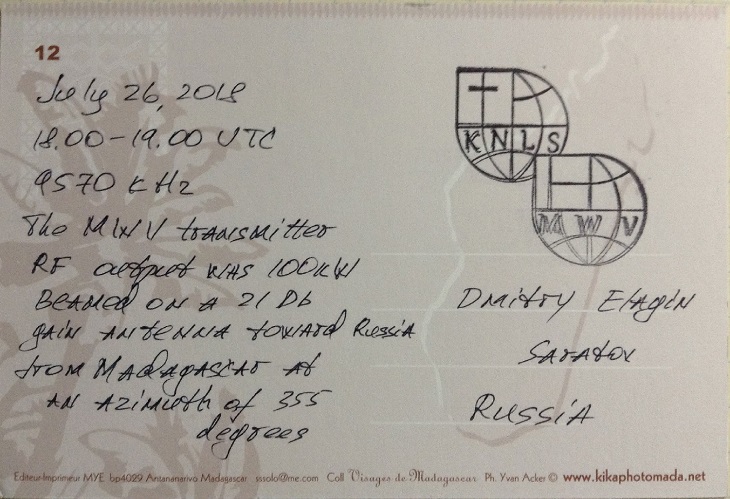 12
July 26, 2018
18.00-19.00 UTC
9570 kHz
The MWV transmitter
RF output was 100kW
BEAMED ON A 21 Db
gain ANTENNA toward Russia
from MADAgascar at
AN AZIMUTH of 355
degrees
KNLS
MWV
Dmitry Elagin
Saratov
Russia
Editeur-Imprimeur MYE bp4029 Antananarivo Madagascar sssolo@me.com Coll Visages de Madagascar Ph. Yvan Acker © www.kikaphotomada.net